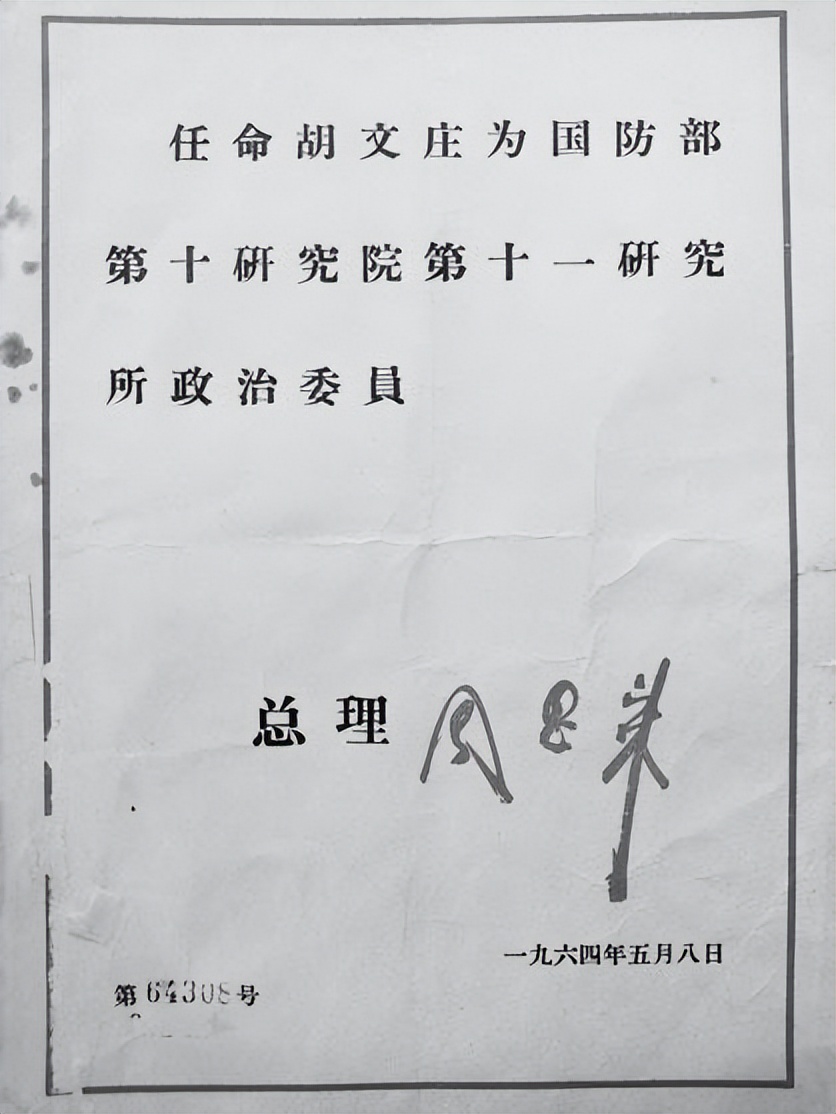 任命胡文庄为国防部
第十研究院第十一研究
所政治委員
总理 周恩来
一九六四年五月八日
第64308号